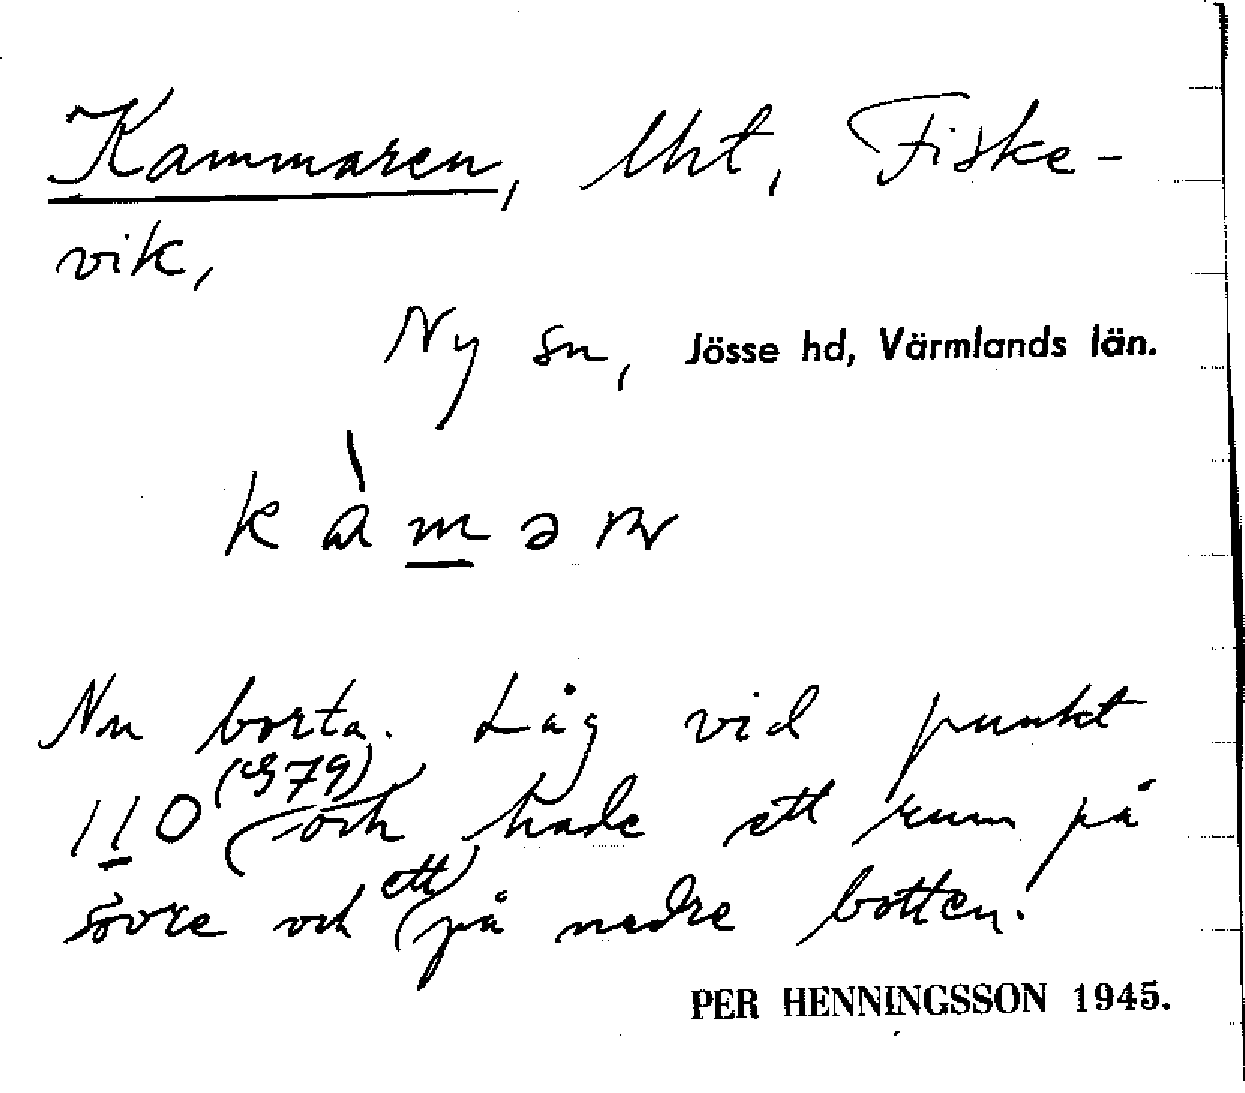 Kammaren, lht, Fiske-
vik,
Ny sn, Jösse hd, Värmlands län.
k à m ə ɴ
Nu borta. Låg vid punkt
110 (979) och hade ett rum på
övre och ett på nedre botten.
PER HENNINGSSON 1945.